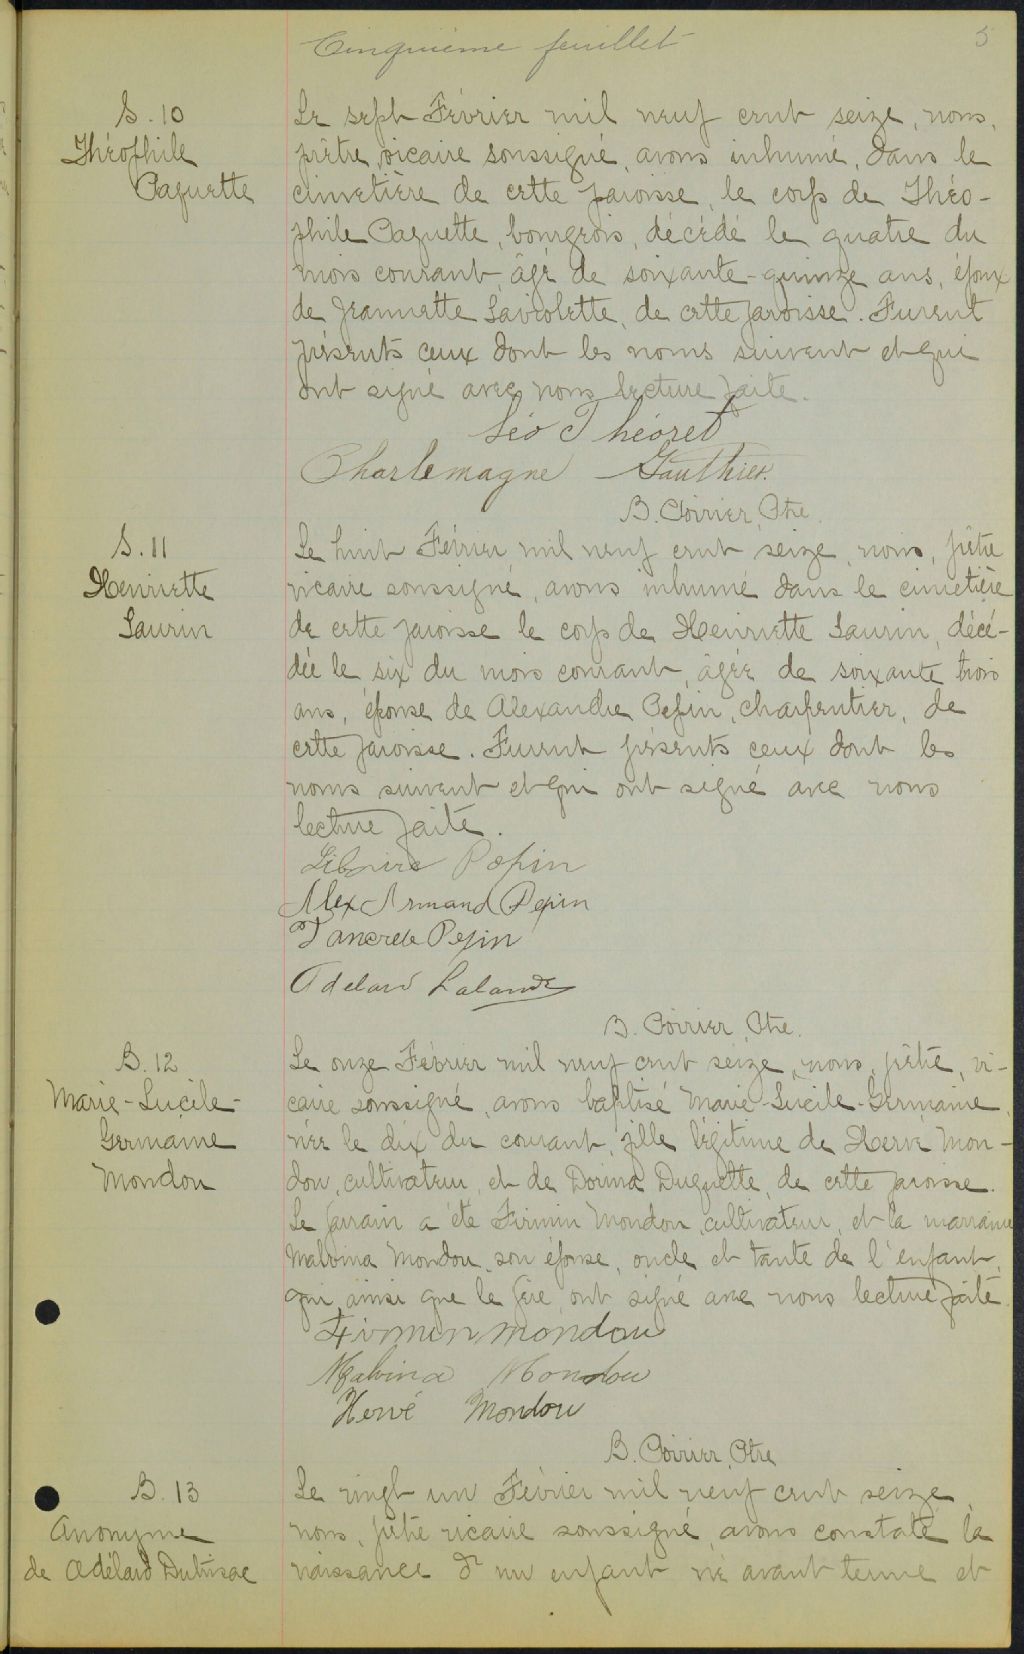 Cinquième feuillet
5
S. 10
Théophile
Paquette
Le sept Février mil neuf cent seize, nous,
prêtre, vicaire soussigné, avons inhumé, dans le
cimetière de cette paroisse, le corps de Théo-
phile Paquette, bourgeois, décédé le quatre du
mois courant, âgé de soixante-quinze ans, époux
de Jeannette Laviolette, de cette paroisse. Furent
présents ceux dont les noms suivent et qui
ont signé avec nous lecture faite.
Léo Théoret
Charlemagne Gauthier.
B. Poirier, Ptre.
S. 11
Henriette
Laurin
Le huit Février mil neuf cent seize, nous, prêtre
vicaire soussigné, avons inhumé dans le cimetière
de cette paroisse le corps de Henriette Laurin, décé-
dée le six du mois courant, âgée de soixante trois
ans, épouse de Alexandre Pepin, charpentier, de
cette paroisse. Furent présents ceux dont les
noms suivent et qui ont signé avec nous
lecture faite.
Libaire Pepin
Alex Armand Pepin
Tancrède Pepin
Adelard Lalande
B. Poirier, Ptre.
B. 12
Marie-Lucile-
Germaine
Mondou
Le onze Février mil neuf cent seize, nous, prêtre, vi-
caire soussigné, avons baptisé Marie-Lucile-Germaine,
née le dix du courant, fille légitime de Hervé Mon-
dou, cultivateur, et de Dorina Duquette, de cette paroisse.
Le parrain a été Firmin Mondou, cultivateur, et la marraine
Malvina Mondou, son épouse, oncle et tante de l'enfant,
qui, ainsi que le père, ont signé avec nous lecture faite.
Firmin mondou
Malvina Mondou
Hervé Mondou
B. Poirier, Ptre
B. 13
Anonyme
de Adélard Dubrisac
Le vingt un Février mil neuf cent seize,
nous, prêtre vicaire soussigné, avons constaté la
naissance d'un enfant né avant terme et